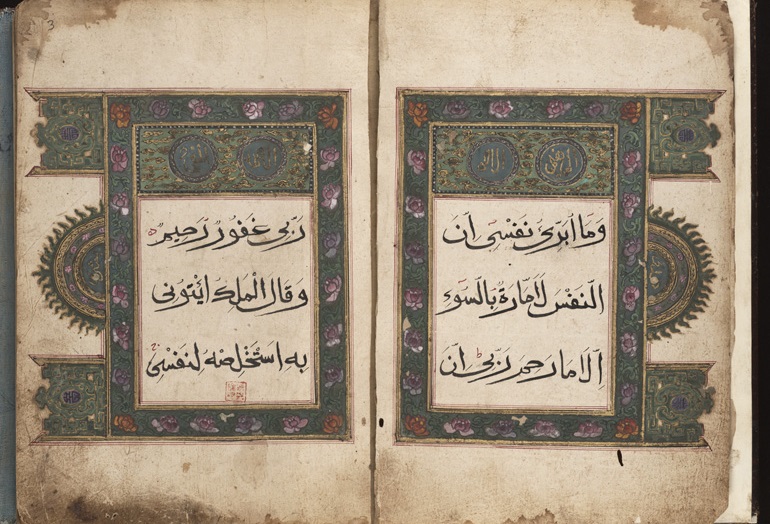 وَمَا أُبَرِّئُ نَفْسِي اَنَّ
النَّفْسَ لَأَمَّارَةٌ بِالسُّوءِ
اِلَّا مَا رَحِمَ رَبِّي اِنَّ
3
رَبِّي غَفُورٌ رَّحِيمٌ
وَقَالَ الْمَلِكُ ائْتُونِي
بِهِ اَسْتَخْلِصْهُ لِنَفْسِي